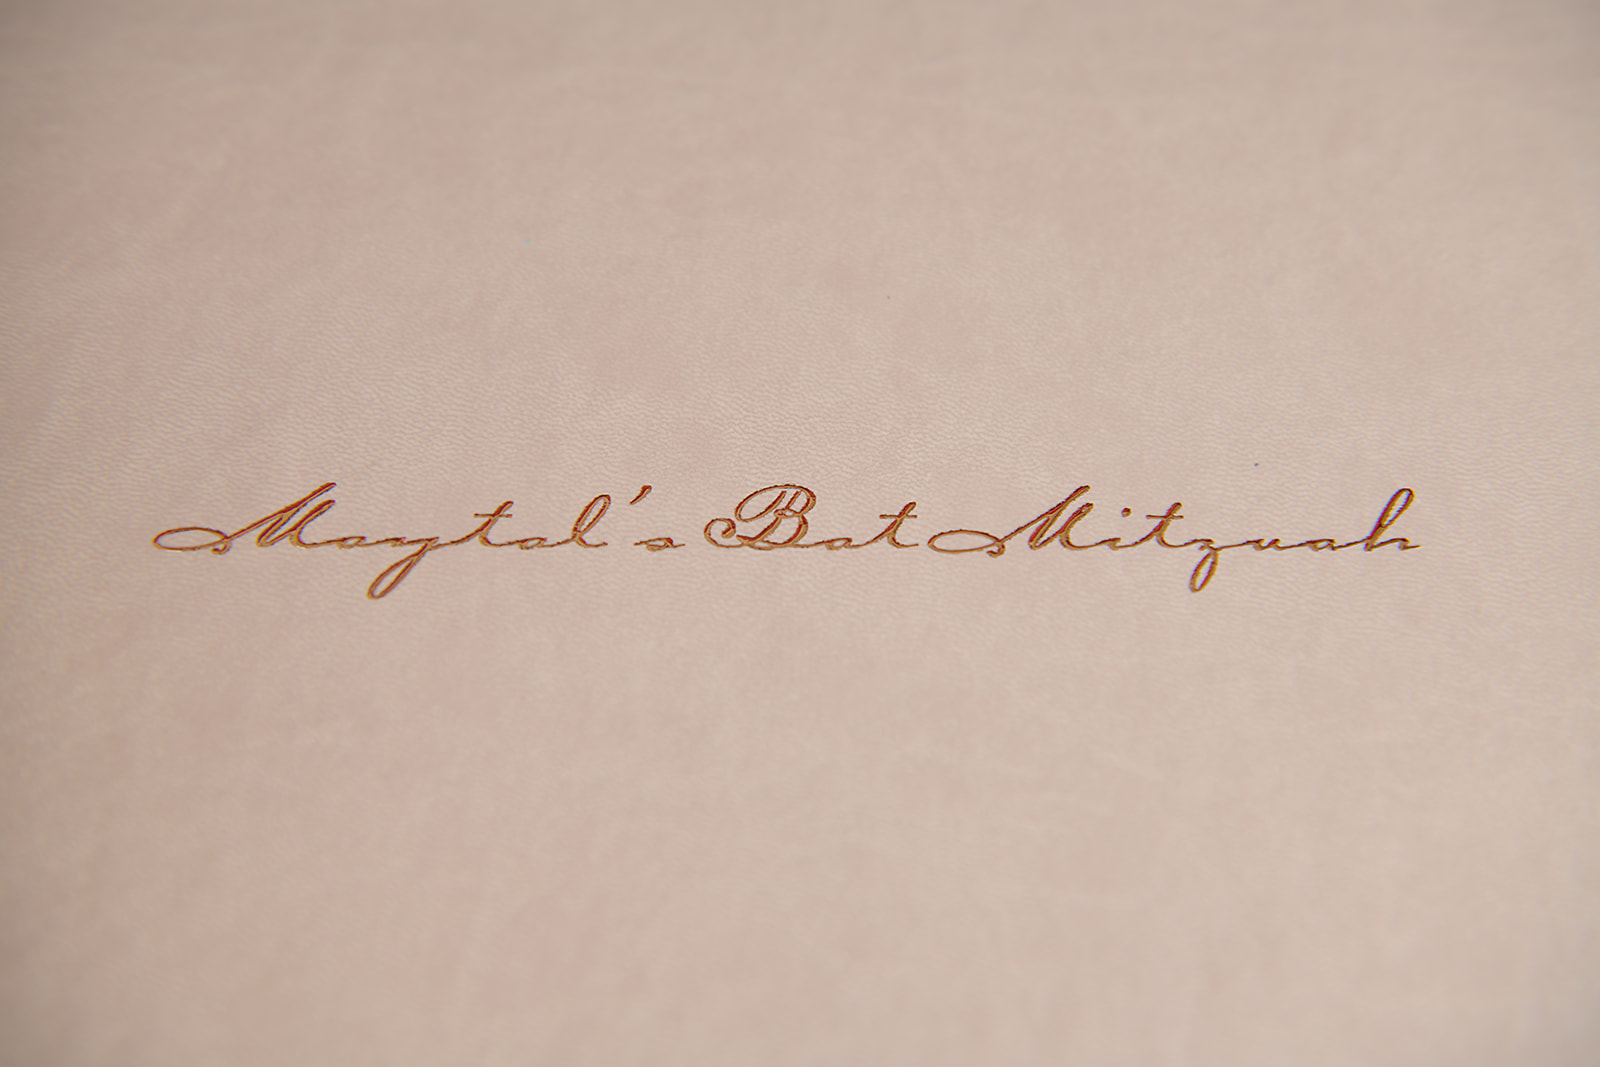 Maytal's Bat Mitzvah